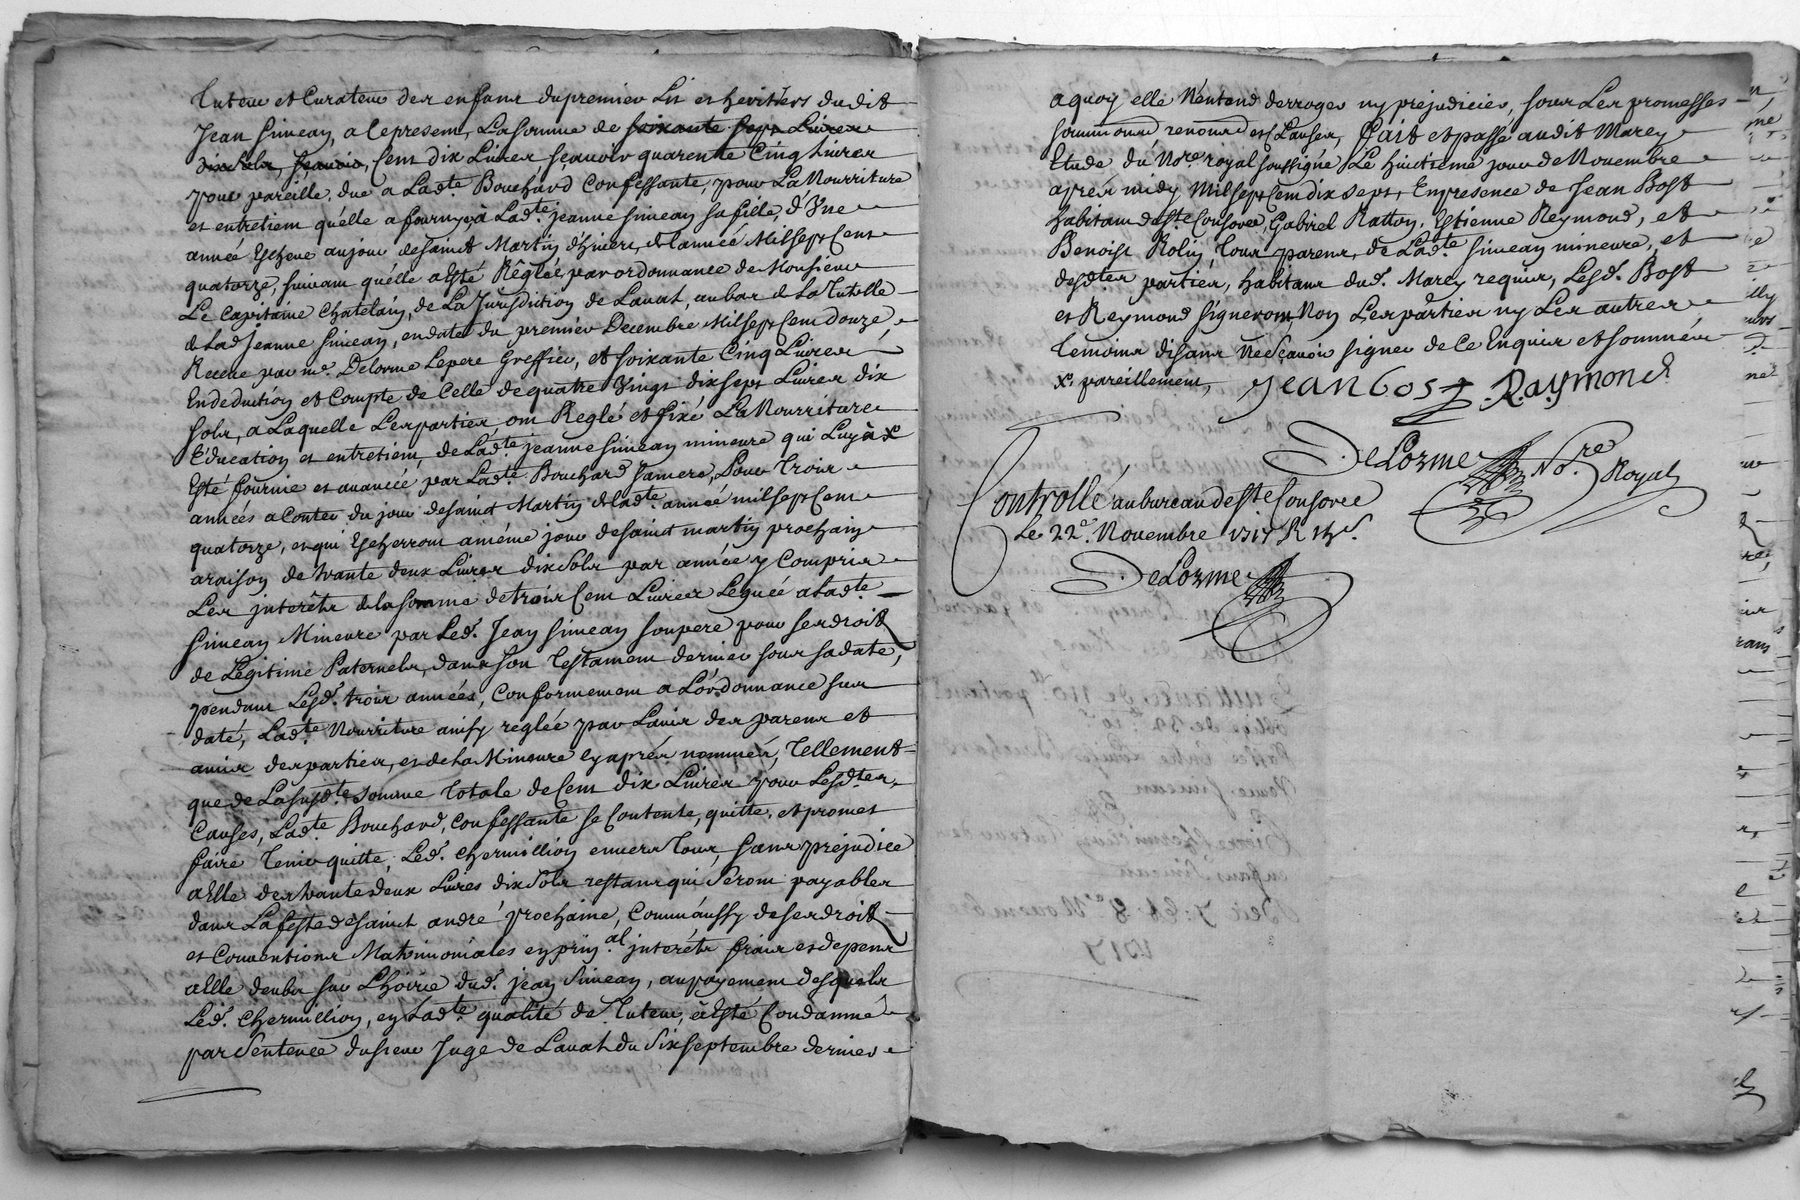 tuteur et Curateur des enfans du premier Lit et heritiers dudit
Jean Simean, a lepresent, La somme de soixante sept Livres
dix sols, scauoir, Cent dix Livres scauoir quarente Cinq Livres
pour pareille, due a Ladte Bouchard Confessante, pour La Nourriture
et entretient qu'elle a fourny, à Ladte jeanne simean sa fille, d'Vne
année Escheue au jour de saint Martin d'hiuert de l'année Mil sept Cent
quatorze, suiuant quelle a Esté Réglée, par ordonnance de Monsieur
Le Capitaine Chatelain, de La Jurisdition de Lauat, au bas de la Tutelle
de Lad. Jeanne Simean, en date du premier Decembre Mil sept Cent douze,
Receue par me. Delorme Le pere Greffier, et soixante Cinq Liures
En deduction et Compte de Celle de quatre Vingt dix sept Liures dix
sols, a Laquelle Les parties, ont Reglé et fixé La Nourriture
Education et entretient, de Ladte jeanne simean mineure qui Luy à x
Esté fournie et auancée par Ladte Bouchard sa mere, pour trois
années a Conter du jour de saint Martin de Ladte année mil sept Cent
quatorze, et qui Escherront a méme jour de saint martin prochain
a raison de trante deux Liures dix sols par année y Compris
Les interêts de la somme de trois Cent Liures Leguée a Ladte
Simean Mineure par Led. Jean Simean son pere pour ses droits
de Legitime Paternels, dans son Testament dernier sous sa date,
pendant Lesd. trois années, Conformement a L'ordonnance sus
daté, Ladte Nourriture ainsy reglée par L'auis des parens et
amis des parties, et de La Mineure cy aprés nommés, Tellement
que de La susdte somme totale de Cent dix Liures pour Lesdtes
Causes, Ladte Bouchard, Confessante se Contente, quitte, et promet
faire tenir quitte, Led. Chermillion enuers tous, sans prejudice
a Elle des trante deux Liures dix sols restans qui Seront payables
dans La feste de saint andré prochaine, Comm'aussy de ses droits
et Conuentions Matrimoniales en prin.al interéts frais et depens
a Elle deubs sur L'hoirie dud. jean Simean, au payement desquels
Led. Chermillion, en Ladte qualité de Tuteur, à Esté Condamné
par Sentence du sieur Juge de Lauat du Six septembre dernier
a quoy elle N'entend derroger ny prejudicier, sous Les promesses
soumissions renons et Clauses, fait et passé audit Marcy
Etude du Nore royal soussigné Le huictieme jour de Nouembre
apres midy Mil sept Cent dix sept, En presence de Jean Bost
habitant de Ste Consorce, Gabriel Ratton, Estienne Reymond, et
Benoist Rolin, tous parens, de Ladte Simean mineure, et
desdtes parties, habitans dud. Marcy requis, Lesd. Bost
et Reymond signeront, Non Les parties ny Les autres
temoins disans Ne Scauoir signer de Ce Enquis et sommés
x. pareillement,
jean bost R.aymond
DeLorme No.re Royal
Controllé au bureau de Ste Consorce
Le 22e. Nouembre 1717 R
DeLorme